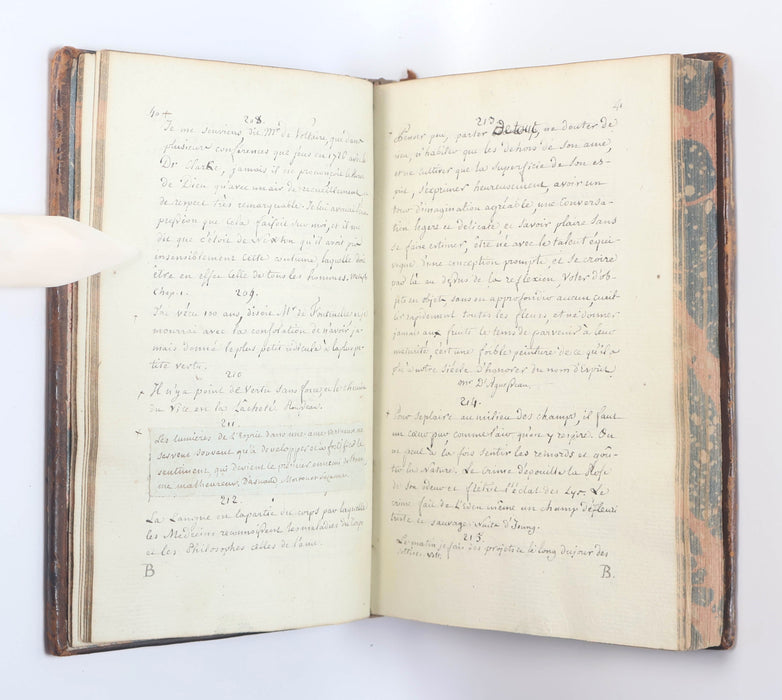 40+
208.
Je me souviens, dit Mr de Voltaire, que dans
plusieurs conférences que j'eus en 1726 avec le
Dr Clarke, jamais il ne prononçoit le nom
de Dieu qu'avec un air de recueillement et
de respect très remarquable. Je lui avouai l'im
pression que cela faisoit sur moi, et il me
dit que c'étoit de Newton qu'il avoit pris
insensiblement cette coutume, laquelle doit
être en effet celle de tous les hommes.
Chap. 1.
209.
J'ai vécu 100 ans, disoit Mr de Fontenelle, et je
mourrai avec la consolation de n'avoir ja
mais donné le plus petit ridicule à la plus pe
tite vertu.
210
Il n'y a point de vertu sans force, et le chemin
du vice est la lâcheté. Rousseau.
211.
Les lumières de l'Esprit dans une ame vertueuse ne
servent souvent qu'à développer et à fortifier le
sentiment, qui devient le premier
une malheureux. Dasnaud.
212.
La Langue est la partie du corps par laquelle
les Médecins reconnoissent les maladies du corps
et les Philosophes celles de l'ame.
B
41
213.
Penser peu, parler De tout, ne douter de
rien, n'habiter que les dehors de son ame,
et ne cultiver que la superficie de son es-
prit, s'exprimer heureusement, avoir un
tour d'imagination agréable, une conversa-
tion legere et délicate, et savoir plaire sans
se faire estimer, être né avec le talent équi-
voque d'une conception prompte, et se croire
par là au dessus de la réflexion, voler d'ob-
jets en objets, sans en approfondir aucun, cueil-
lir rapidement toutes les fleurs, et ne donner
jamais aux fruits le tems de parvenir à leur
maturité, c'est une foible peinture de ce qu'il a
plu à notre siècle d'honorer du nom d'esprit.
Mr D'Aguesseau.
214.
Pour se plaire au milieu des champs, il faut
un cœur pur comme l'air qu'on y respire. On
ne peut à la fois sentir les remords et goû-
ter la Nature. Le crime dépouille la Rose
de son odeur et flétrit l'éclat des Lys. Le
crime fait de l'Eden même un champ dépleuri
triste et sauvage. Nuits d'Young.
215.
Le matin je fais des projets et le long du jour des
sottises. Volt.
B.